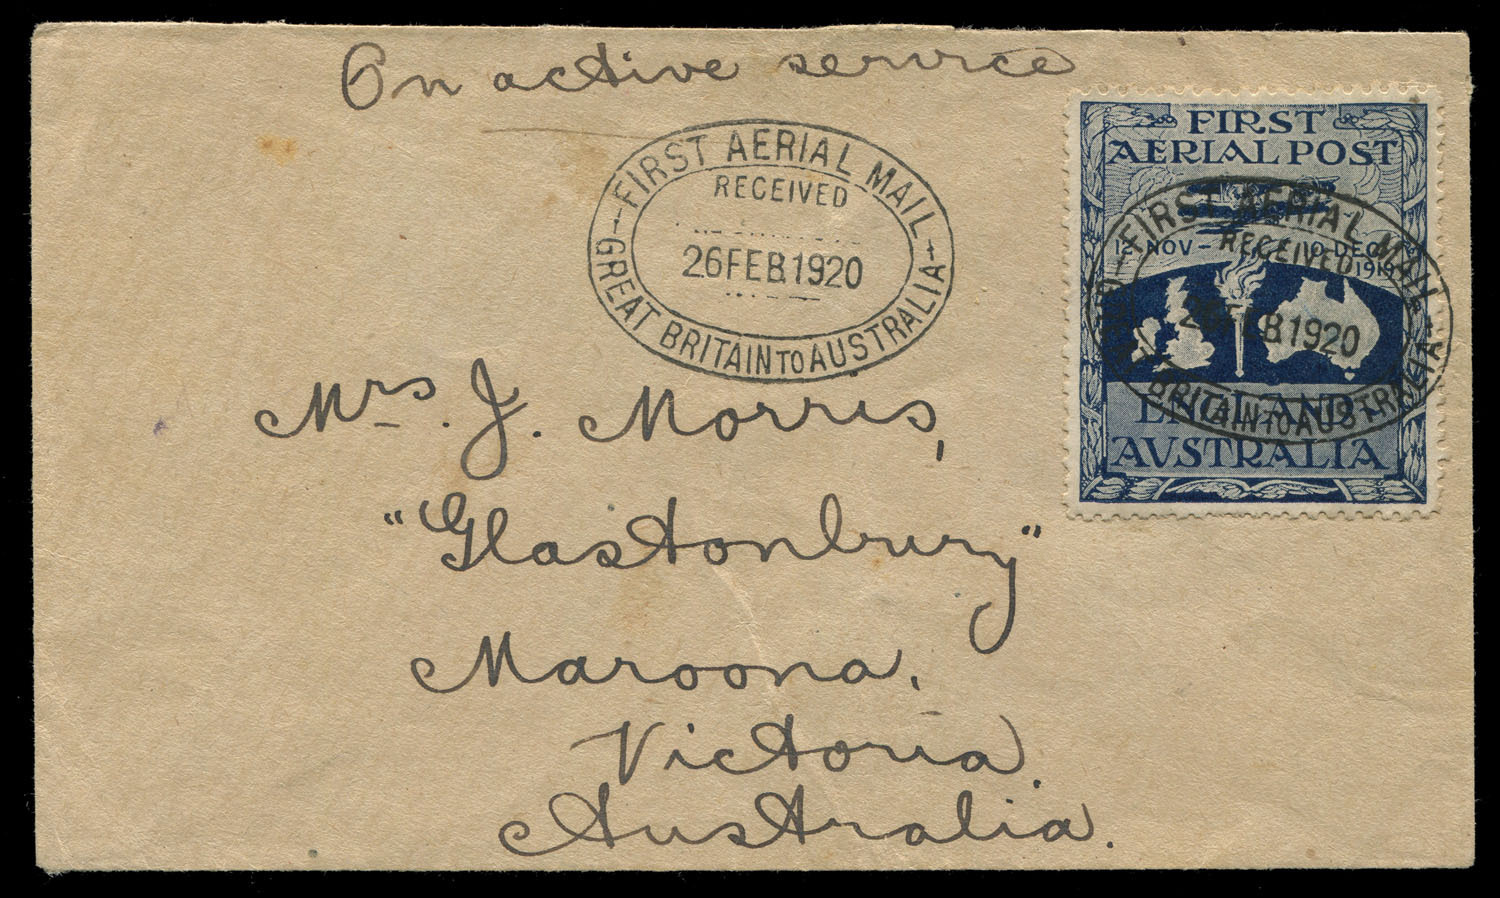 On active service
FIRST AERIAL MAIL
RECEIVED
26FEB1920
GREAT BRITAIN TO AUSTRALIA
FIRST
AERIAL POST
12 NOV - 10 DEC
1919
ENGLAND
AUSTRALIA
FIRST AERIAL MAIL
RECEIVED
26FEB1920
GREAT BRITAIN TO AUSTRALIA
Mrs. J. Morris,
"Glastonbury"
Maroona.
Victoria.
Australia.